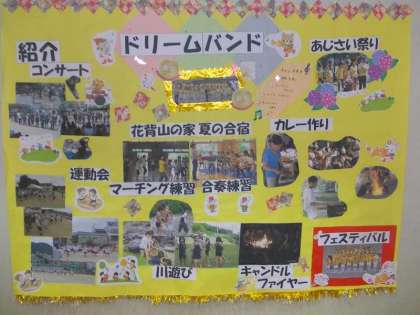 ドリームバンド
紹介
コンサート
あじさい祭り
花背山の家 夏の合宿
カレー作り
運動会
マーチング練習
合奏練習
川遊び
キャンドル
ファイヤー
フェスティバル